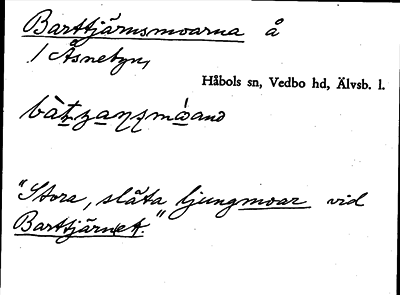 Barttjärnsmoarna å
/ Åsnebyn,
Håbols sn, Vedbo hd, Älvsb. l.
"Stora, släta ljungmoar vid
Barttjärnet."